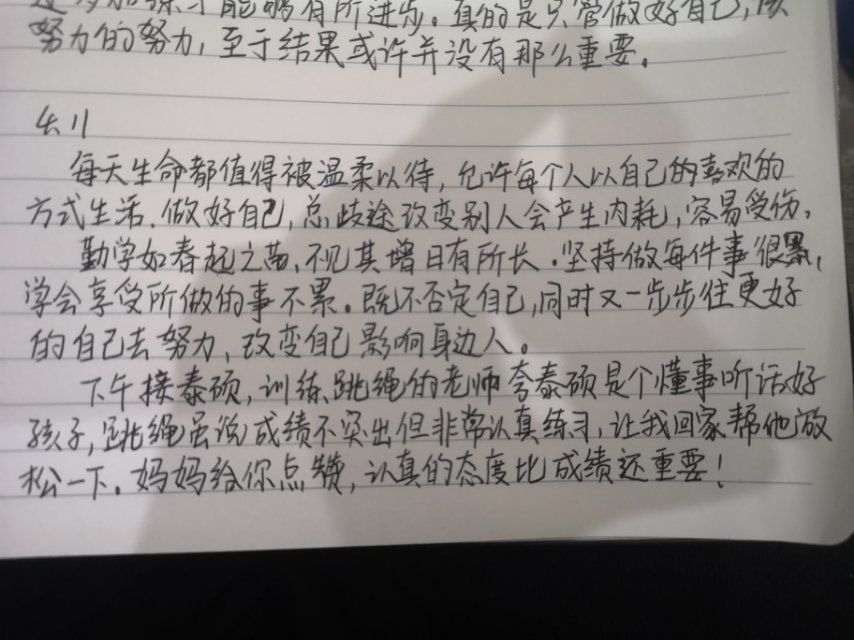 能够有所进步。真的是只管做好自己,
努力的努力,至于结果或许并没有那么重要。
每天生命都值得被温柔以待,允许每个人以自己的喜欢的
方式生活.做好自己,总歧途改变别人会产生内耗,容易受伤,
勤学如春起之苗,不见其增日有所长.坚持做每件事很累,
学会享受所做的事不累。既不否定自己,同时又一步步往更好
的自己去努力,改变自己影响身边人。
下午接泰硕,训练跳绳的老师夸泰硕是个懂事听话好
孩子,跳绳虽说成绩不突出但非常认真练习,让我回家帮他放
松一下。妈妈给你点赞,认真的态度比成绩还重要!